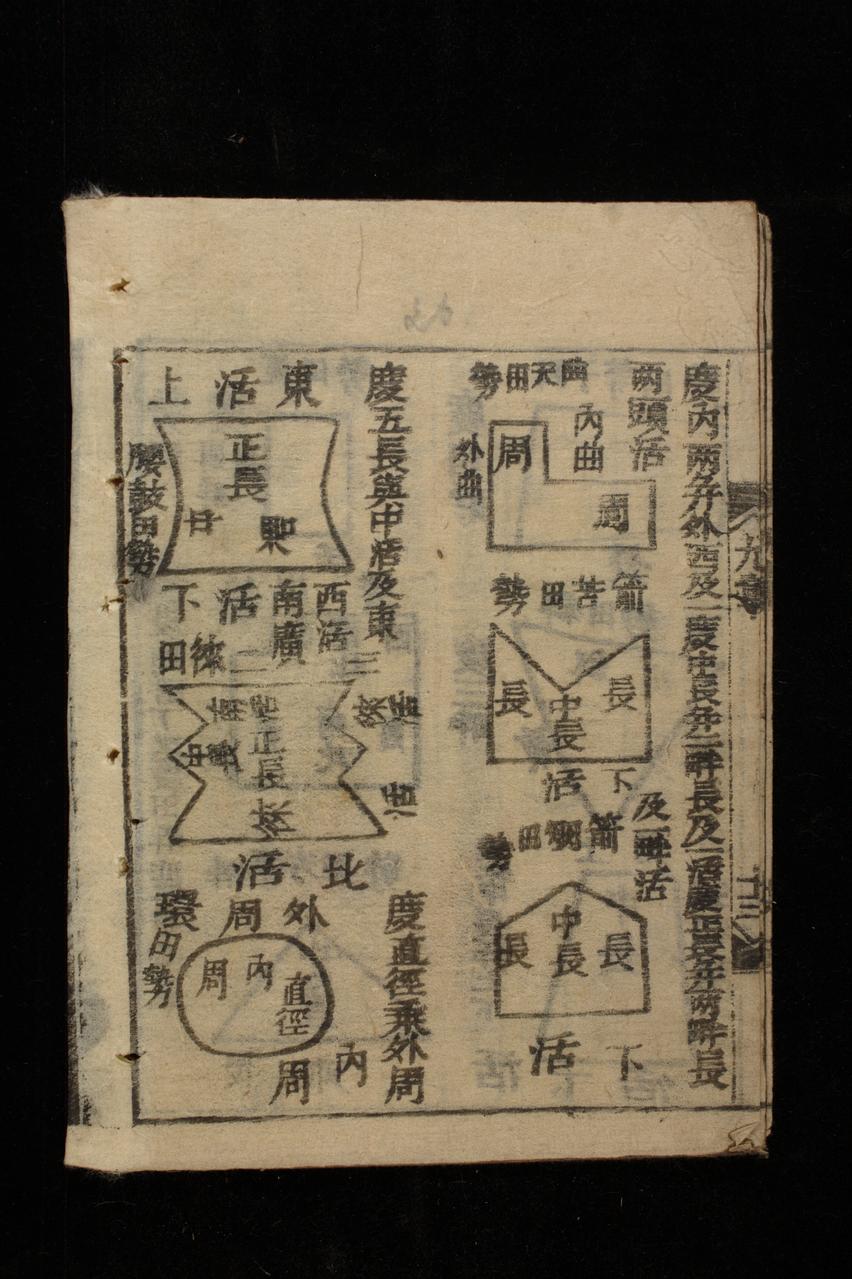 慶內兩弁外西及一慶中長弁二畔長及一活慶正長弁兩畔長
兩頭活
及一畔活
曲尺田勢
內曲
外曲
周
周
箭苦田勢
長
中長
長
下活
箭翎田勢
長
中長
長
下活
慶五長與中活及東
西活
南廣
東活上
正長
腰鼓田勢
下活
三
二
田
正長
比活
慶直徑乘外周
環田勢
外周
直徑
內
周
內周
九章
十三